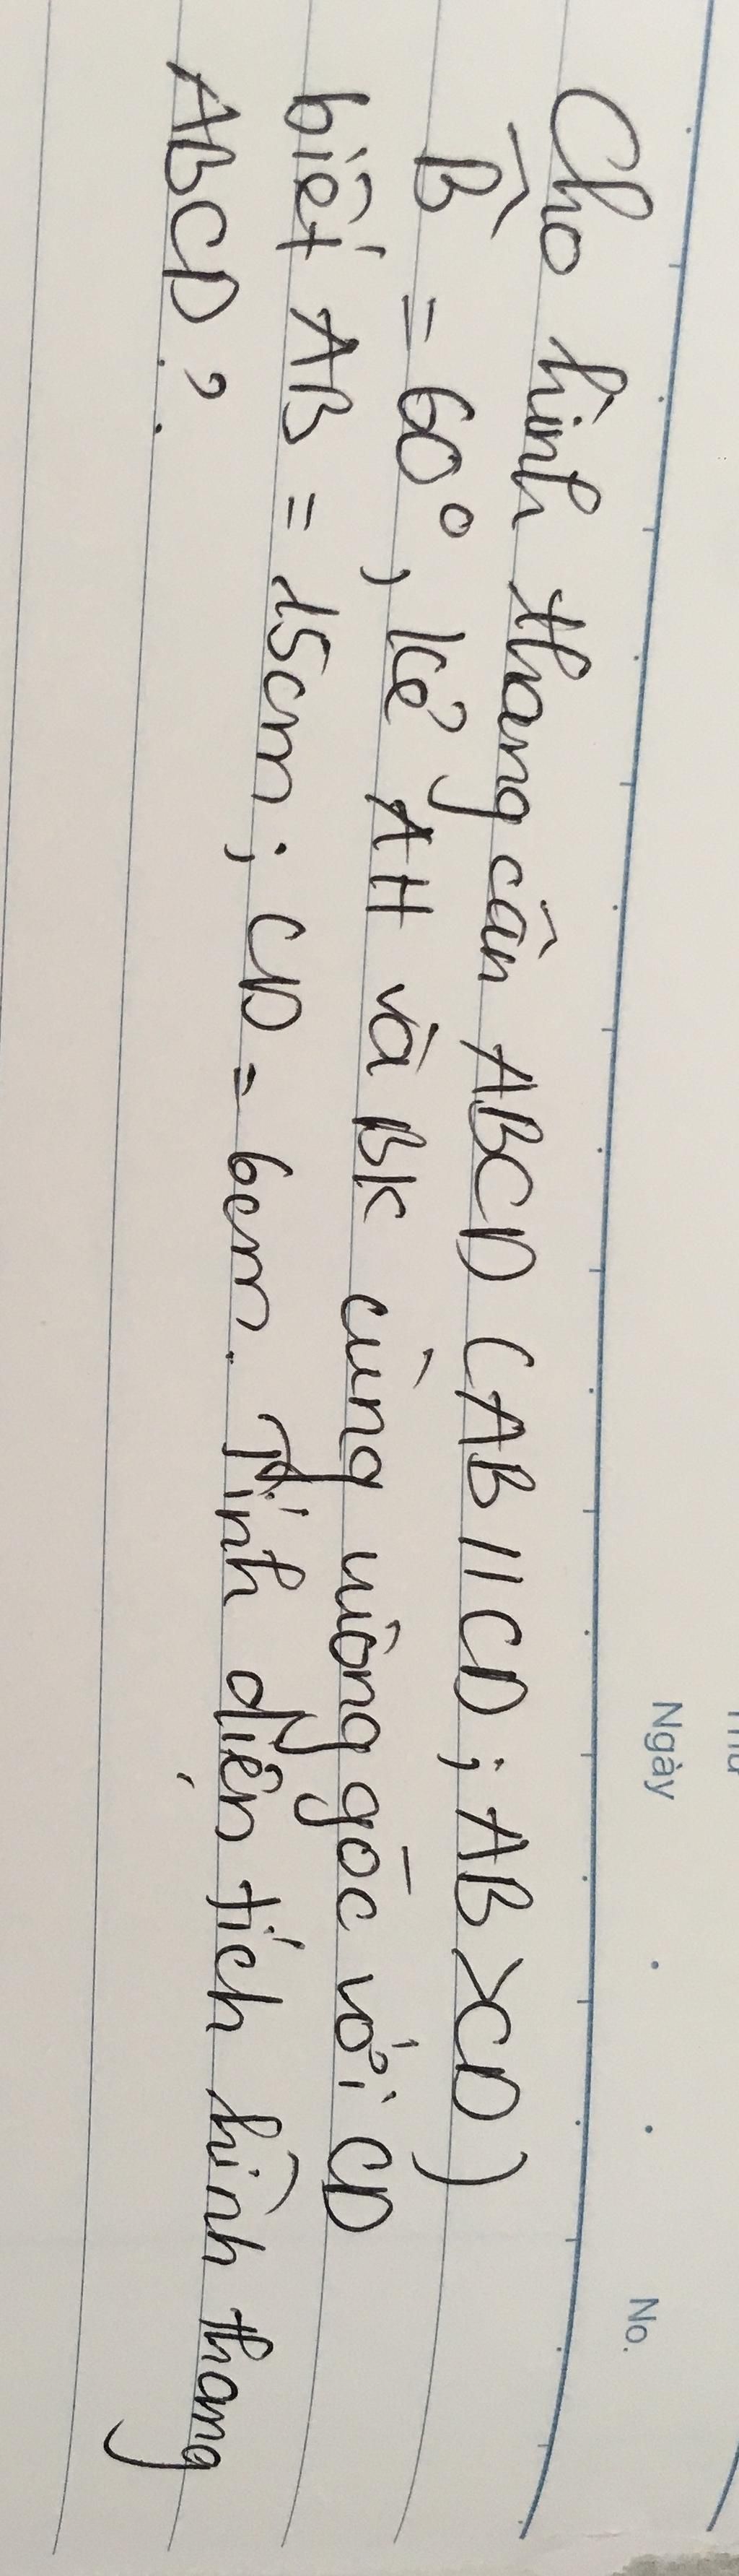 Ngày No.
Cho hình thang cân ABCD (AB // CD ; AB > CD)
B̂ = 60°, kẻ AH và BK cùng vuông góc với CD
biết AB = 15cm ; CD = 6cm. Tính diện tích hình thang
ABCD ?